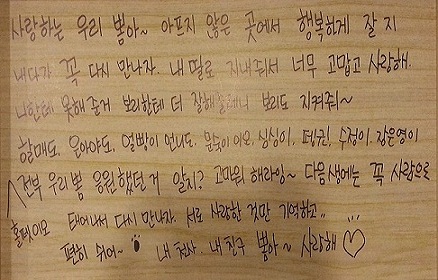 사랑하는 우리 뽐아~ 아프지 않은 곳에서 행복하게 잘 지
내다가 꼭 다시 만나자. 내 딸로 지내줘서 너무 고맙고 사랑해.
나한테 못해준거 보리한테 더 잘해줄테니 보리도 지켜줘~
할매도, 은아야도, 열빵이 언니도, 문숙이 이모, 싱싱이, 수정이, 김은영이
전부 우리뽐 응원했던거 알지? 고마워 해라잉~ 다음생에는 꼭 사람으로
이모 태어나서 다시 만나자. 서로 사랑한 것만 기억하고..
편히 쉬어~ 내 천사. 내 친구 뽐아~ 사랑해♡